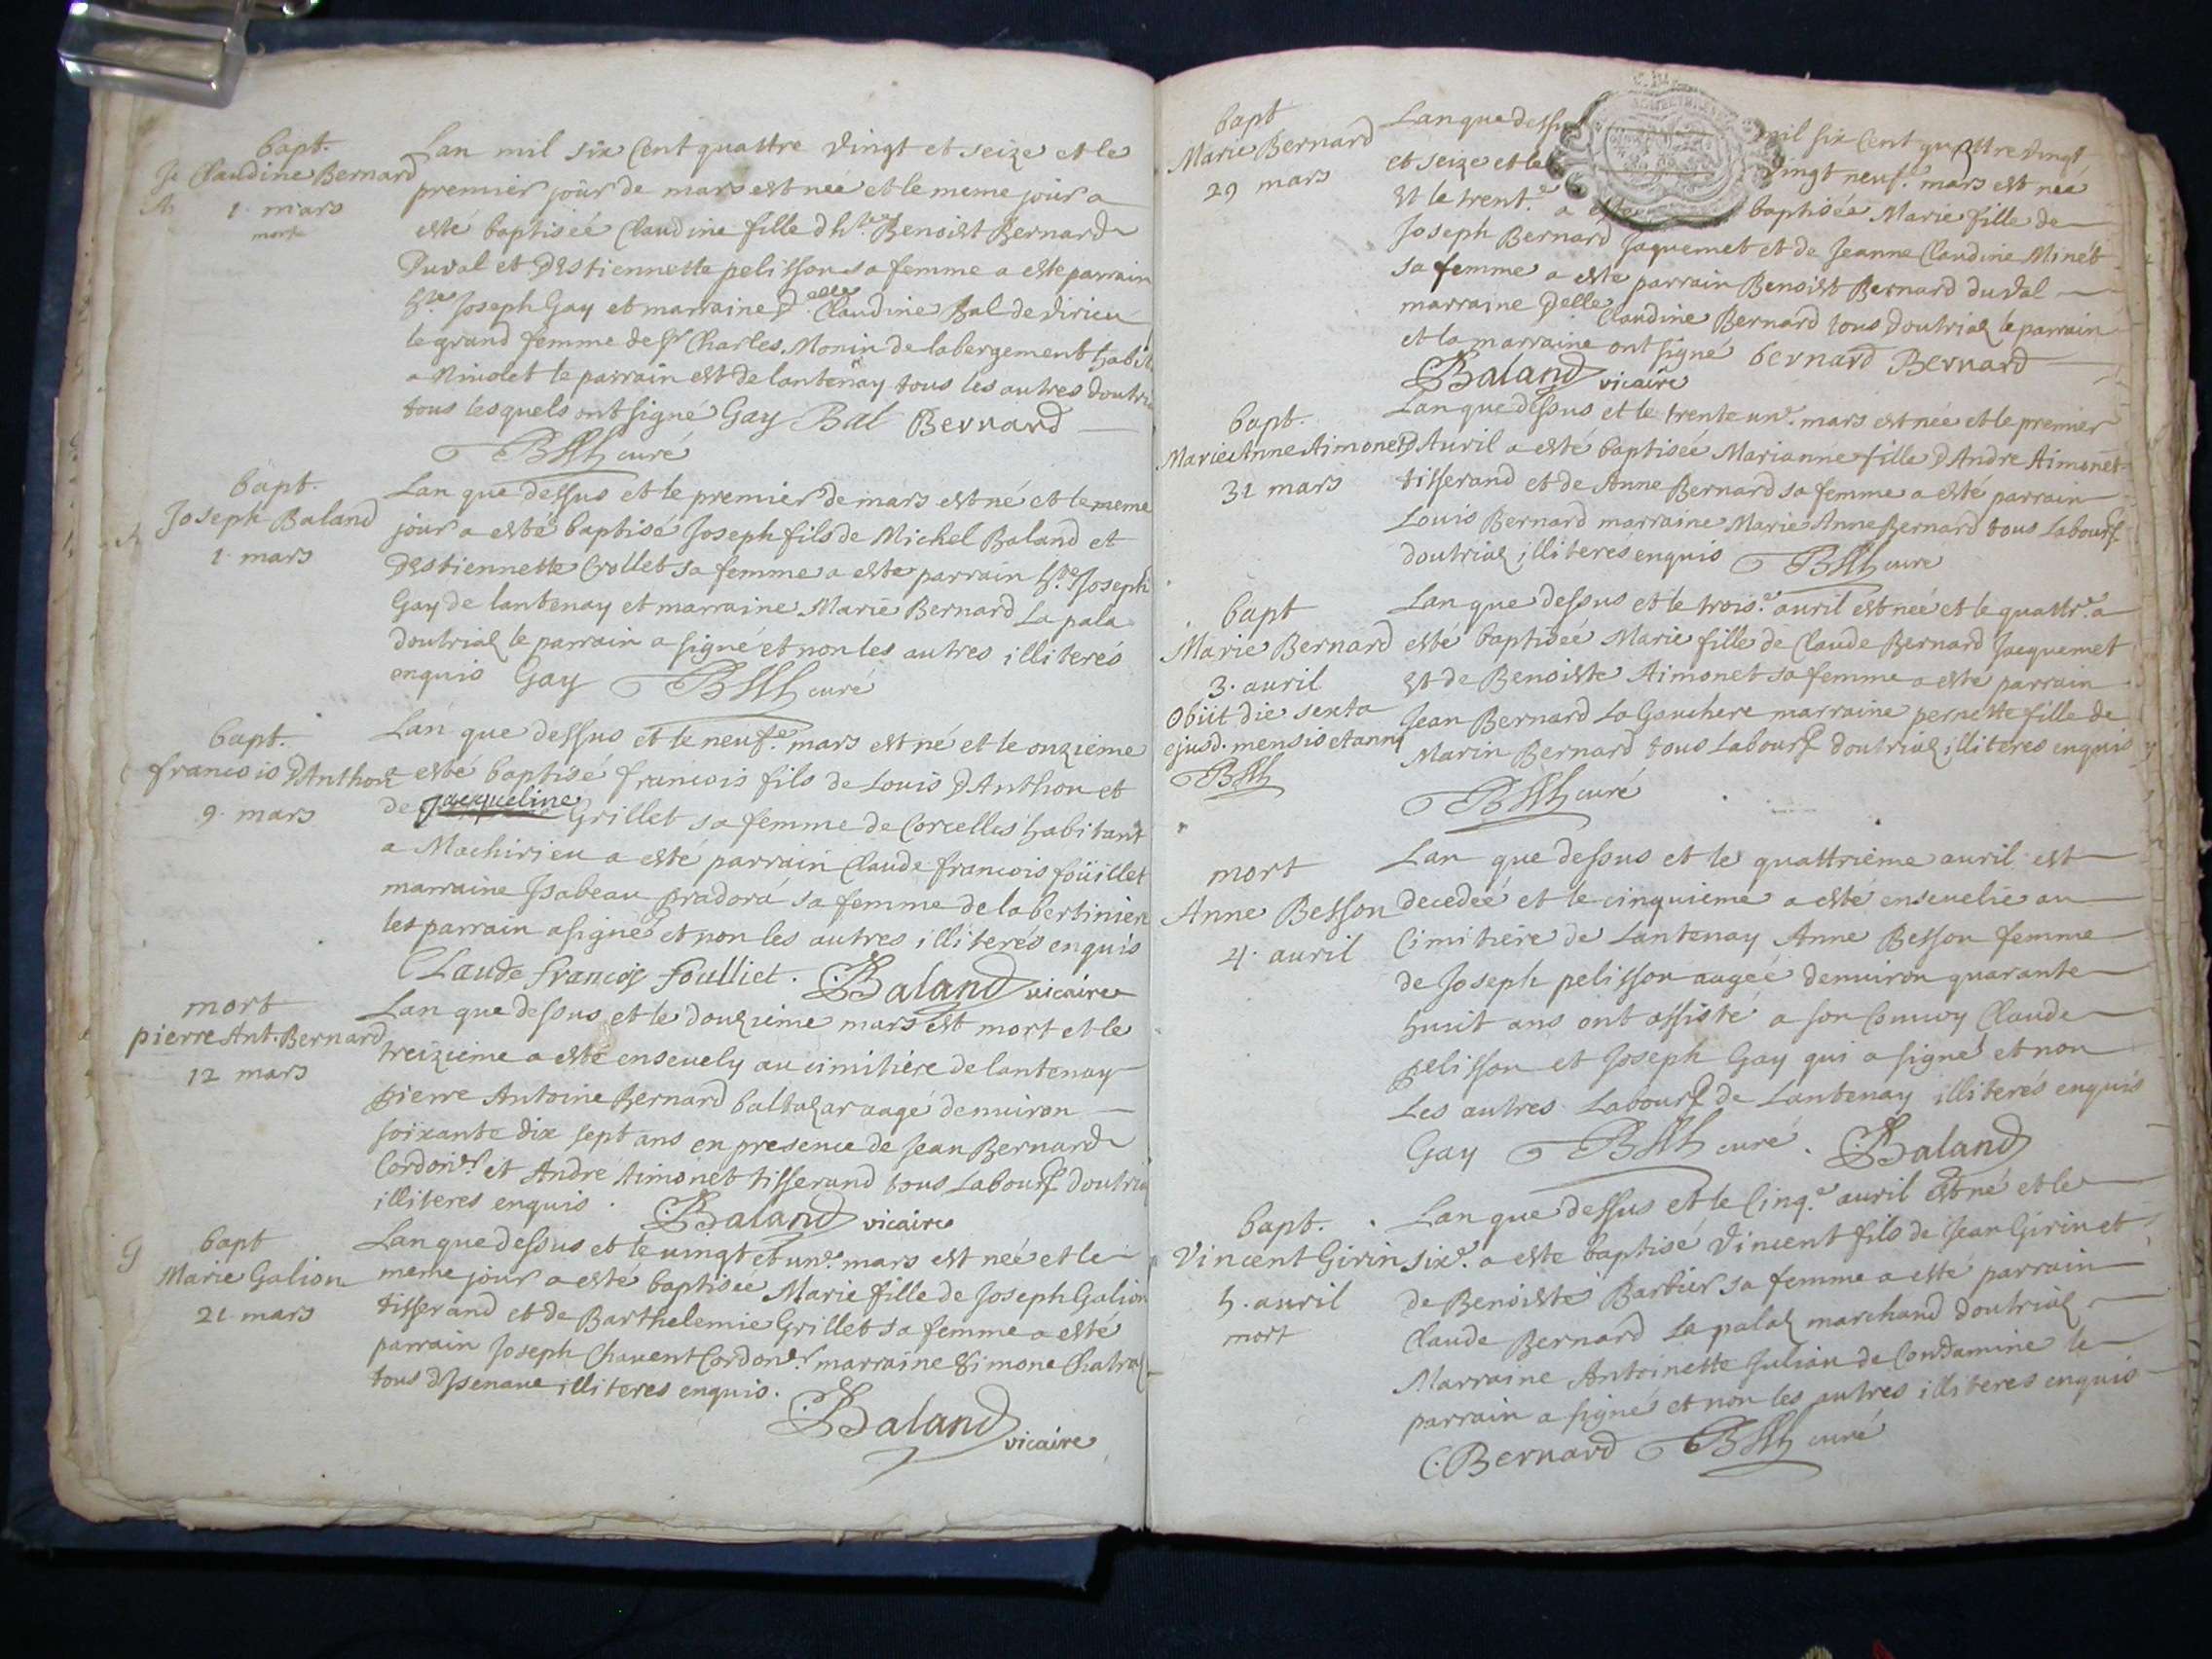 bapt.
Claudine Bernard
1. mars
mort
Lan mil six Cent quattre vingt et seize et le
premier jour de mars est neé et le meme jour a
esté baptiseé Claudine fille d h.te Benoist Bernard
Duval et DEstiennette pelisson sa femme a este parrain
h.te Joseph Gay et marraine D.elle Claudine Bal de virieu
le grand femme de Sr Charles Monin de labergement habit
a Niuolet le parrain est de lantenay tous les autres doutria
tous lesquels ont signé Gay Bal Bernard
curé
bapt.
Joseph Baland
1. mars
Lan que dessus et le premier de mars est né et le meme
jour a esté baptisé Joseph fils de Michel Baland et
DEstiennette Crollet sa femme a este parrain h.te Joseph
Gay de lantenay et marraine Marie Bernard La pala
doutriaz le parrain a signé et non les autres illiterés
enquis Gay curé
bapt.
francois DAnthon
9. mars
Lan que dessus et le neuf.e mars est né et le onzieme
esté baptisé francois fils de Louis DAnthon et
de Jacqueline Grillet sa femme de Corcelles habitant
a Machirieu a esté parrain Claude francois foüillet
marraine Isabeau pradora sa femme de la bertinier
les parrain a signé et non les autres illiterés enquis
Claude francois foulliet. Baland vicaire
mort
pierre Ant. Bernard
12 mars
Lan que dessus et le douzieme mars est mort et le
treizieme a esté enseuely au cimitiere de lantenay
pierre Antoine Bernard baltazar aagé denuiron
soixante dix sept ans en presence de Jean Bernard
Cordon.er et André Aimonet tisserand tous Labours doutria
illiteres enquis. Baland vicaire
bapt
Marie Galion
21. mars
Lan que dessus et le uingt et un.e mars est neé et le
meme jour a esté baptiseé Marie fille de Joseph Galion
tisserand et de Barthelemie Grillet sa femme a esté
parrain Joseph Chauent Cordon.er marraine Simone Chatra
tous dIsenaue illiteres enquis.
Baland vicaire
bapt
Marie Bernard
29 mars
Lan que dessus mil six Cent quattre vingt
et seize et le vingt neuf.e mars est neé
et le trent.e a este baptiseé Marie fille de
Joseph Bernard Jaquemet et de Jeanne Claudine Minet
sa femme a este parrain Benoist Bernard duval
marraine D.elle Claudine Bernard tous doutriaz le parrain
et la marraine ont signé bernard Bernard
Baland vicaire
bapt.
Marie Anne Aimonet
31 mars
Lan que dessus et le trente un.e mars est neé et le premier
DAuril a esté baptiseé Marianne fille DAndre Aimonet
tisserand et de Anne Bernard sa femme a esté parrain
Louis Bernard marraine Marie Anne Bernard tous Labours
doutriaz illiterés enquis curé
bapt
Marie Bernard
3. auril
Obiit die sexta
ejusd. mensis et anny
Lan que dessus et le trois.e auril est neé et le quattr.e a
esté baptiseé Marie fille de Claude Bernard Jacquemet
et de Benoiste Aimonet sa femme a esté parrain
Jean Bernard La Gauchere marraine pernette fille de
Marin Bernard tous Labours doutriaz illiteres enquis
curé
mort
Anne Besson
4. auril
Lan que dessus et le quattrieme auril est
decedeé et le cinquieme a esté enseuelie au
Cimitiere de Lantenay Anne Besson femme
de Joseph pelisson aageé denuiron quarante
huit ans ont assisté a son Conuoy Claude
pelisson et Joseph Gay qui a signé et non
Les autres Labours de Lantenay illiterés enquis
Gay curé. Baland
bapt.
Vincent Girin
5. auril
mort
Lan que dessus et le Cinq.e auril est né et le
six.e a este baptisé Vincent fils de Jean Girin et
de Benoiste Barbier sa femme a este parrain
Claude Bernard La palaz marchand doutriaz
Marraine Antoinette Julian de Condamine le
parrain a signé et non les autres illiteres enquis
C. Bernard curé